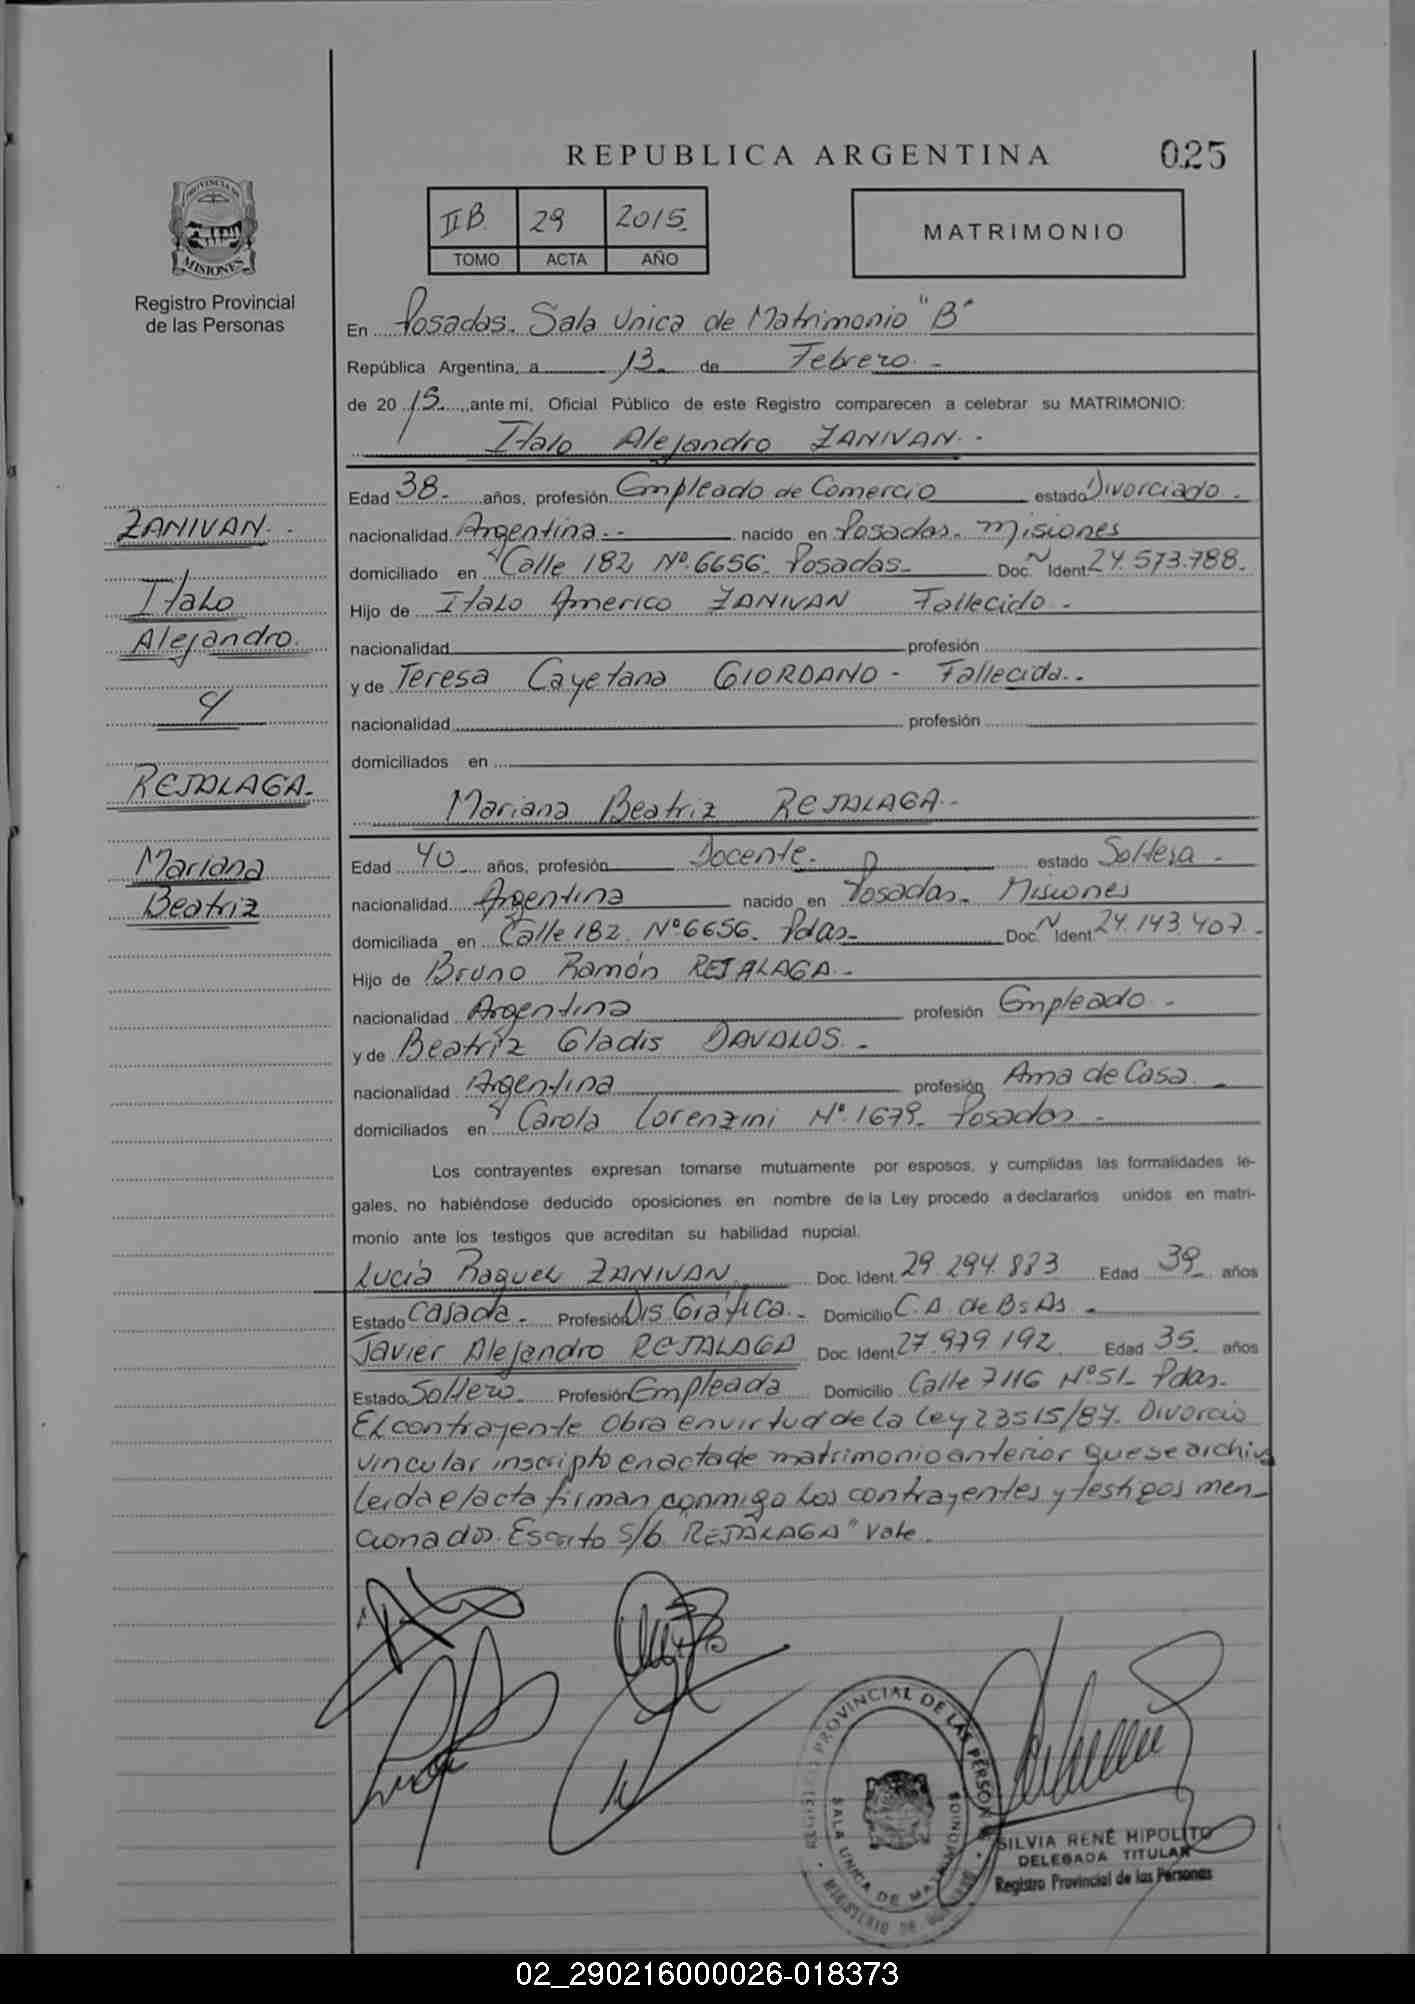 REPUBLICA ARGENTINA
025
PROVINCIA DE
MISIONES
Registro Provincial
de las Personas
IIB. 29 2015.
TOMO ACTA AÑO
MATRIMONIO
En Posadas. Sala Unica de Matrimonio "B"
República Argentina, a 13 de Febrero. -
de 2015 ante mí, Oficial Público de este Registro comparecen a celebrar su MATRIMONIO:
Italo Alejandro ZANIVAN. -
Edad 38 años, profesión Empleado de Comercio estado Divorciado -
nacionalidad Argentina. - nacido en Posadas. Misiones
domiciliado en Calle 182 Nº 6656. Posadas. Doc. N Ident. 24.573.788.
Hijo de Italo Americo ZANIVAN Fallecido. -
nacionalidad profesión
y de Teresa Cayetana GIORDANO - Fallecida. -
nacionalidad profesión
domiciliados en
Mariana Beatriz REJALAGA. -
Edad 40 años, profesión Docente. estado Soltera -
nacionalidad Argentina nacido en Posadas. Misiones
domiciliada en Calle 182. Nº 6656. Pdas. Doc. N Ident. 24.143.407. -
Hijo de Bruno Ramón REJALAGA. -
nacionalidad Argentina profesión Empleado. -
y de Beatriz Gladis DAVALOS. -
nacionalidad Argentina profesión Ama de Casa. -
domiciliados en Carola Lorenzini Nº 1679. Posadas -
Los contrayentes expresan tomarse mutuamente por esposos, y cumplidas las formalidades le-
gales, no habiéndose deducido oposiciones en nombre de la Ley procedo a declararlos unidos en matri-
monio ante los testigos que acreditan su habilidad nupcial.
Lucia Raquel ZANIVAN Doc. Ident. 29.294.883 Edad 39 años
Estado Casada. Profesión Dis. Gráfica. Domicilio C.A. de Bs As. -
Javier Alejandro REJALAGA Doc. Ident. 27.979.192 Edad 35 años
Estado Soltero. Profesión Empleada Domicilio Calle 7116 Nº 51. Pdas.
El contrayente obra en virtud de la Ley 23515/87. Divorcio
vincular inscripto en acta de matrimonio anterior que se archiva
Leida el acta firman conmigo los contrayentes y testigos men-
cionados. Escrito S/b. REJALAGA" Vale.
ZANIVAN. -
Italo
Alejandro.
y
REJALAGA.
Mariana
Beatriz
PROVINCIAL DE LAS PERSONAS
SALA UNICA DE MATRIMONIOS
MINISTERIO DE GOBIERNO
SILVIA RENÉ HIPOLITO
DELEGADA TITULAR
Registro Provincial de las Personas
02_290216000026-018373